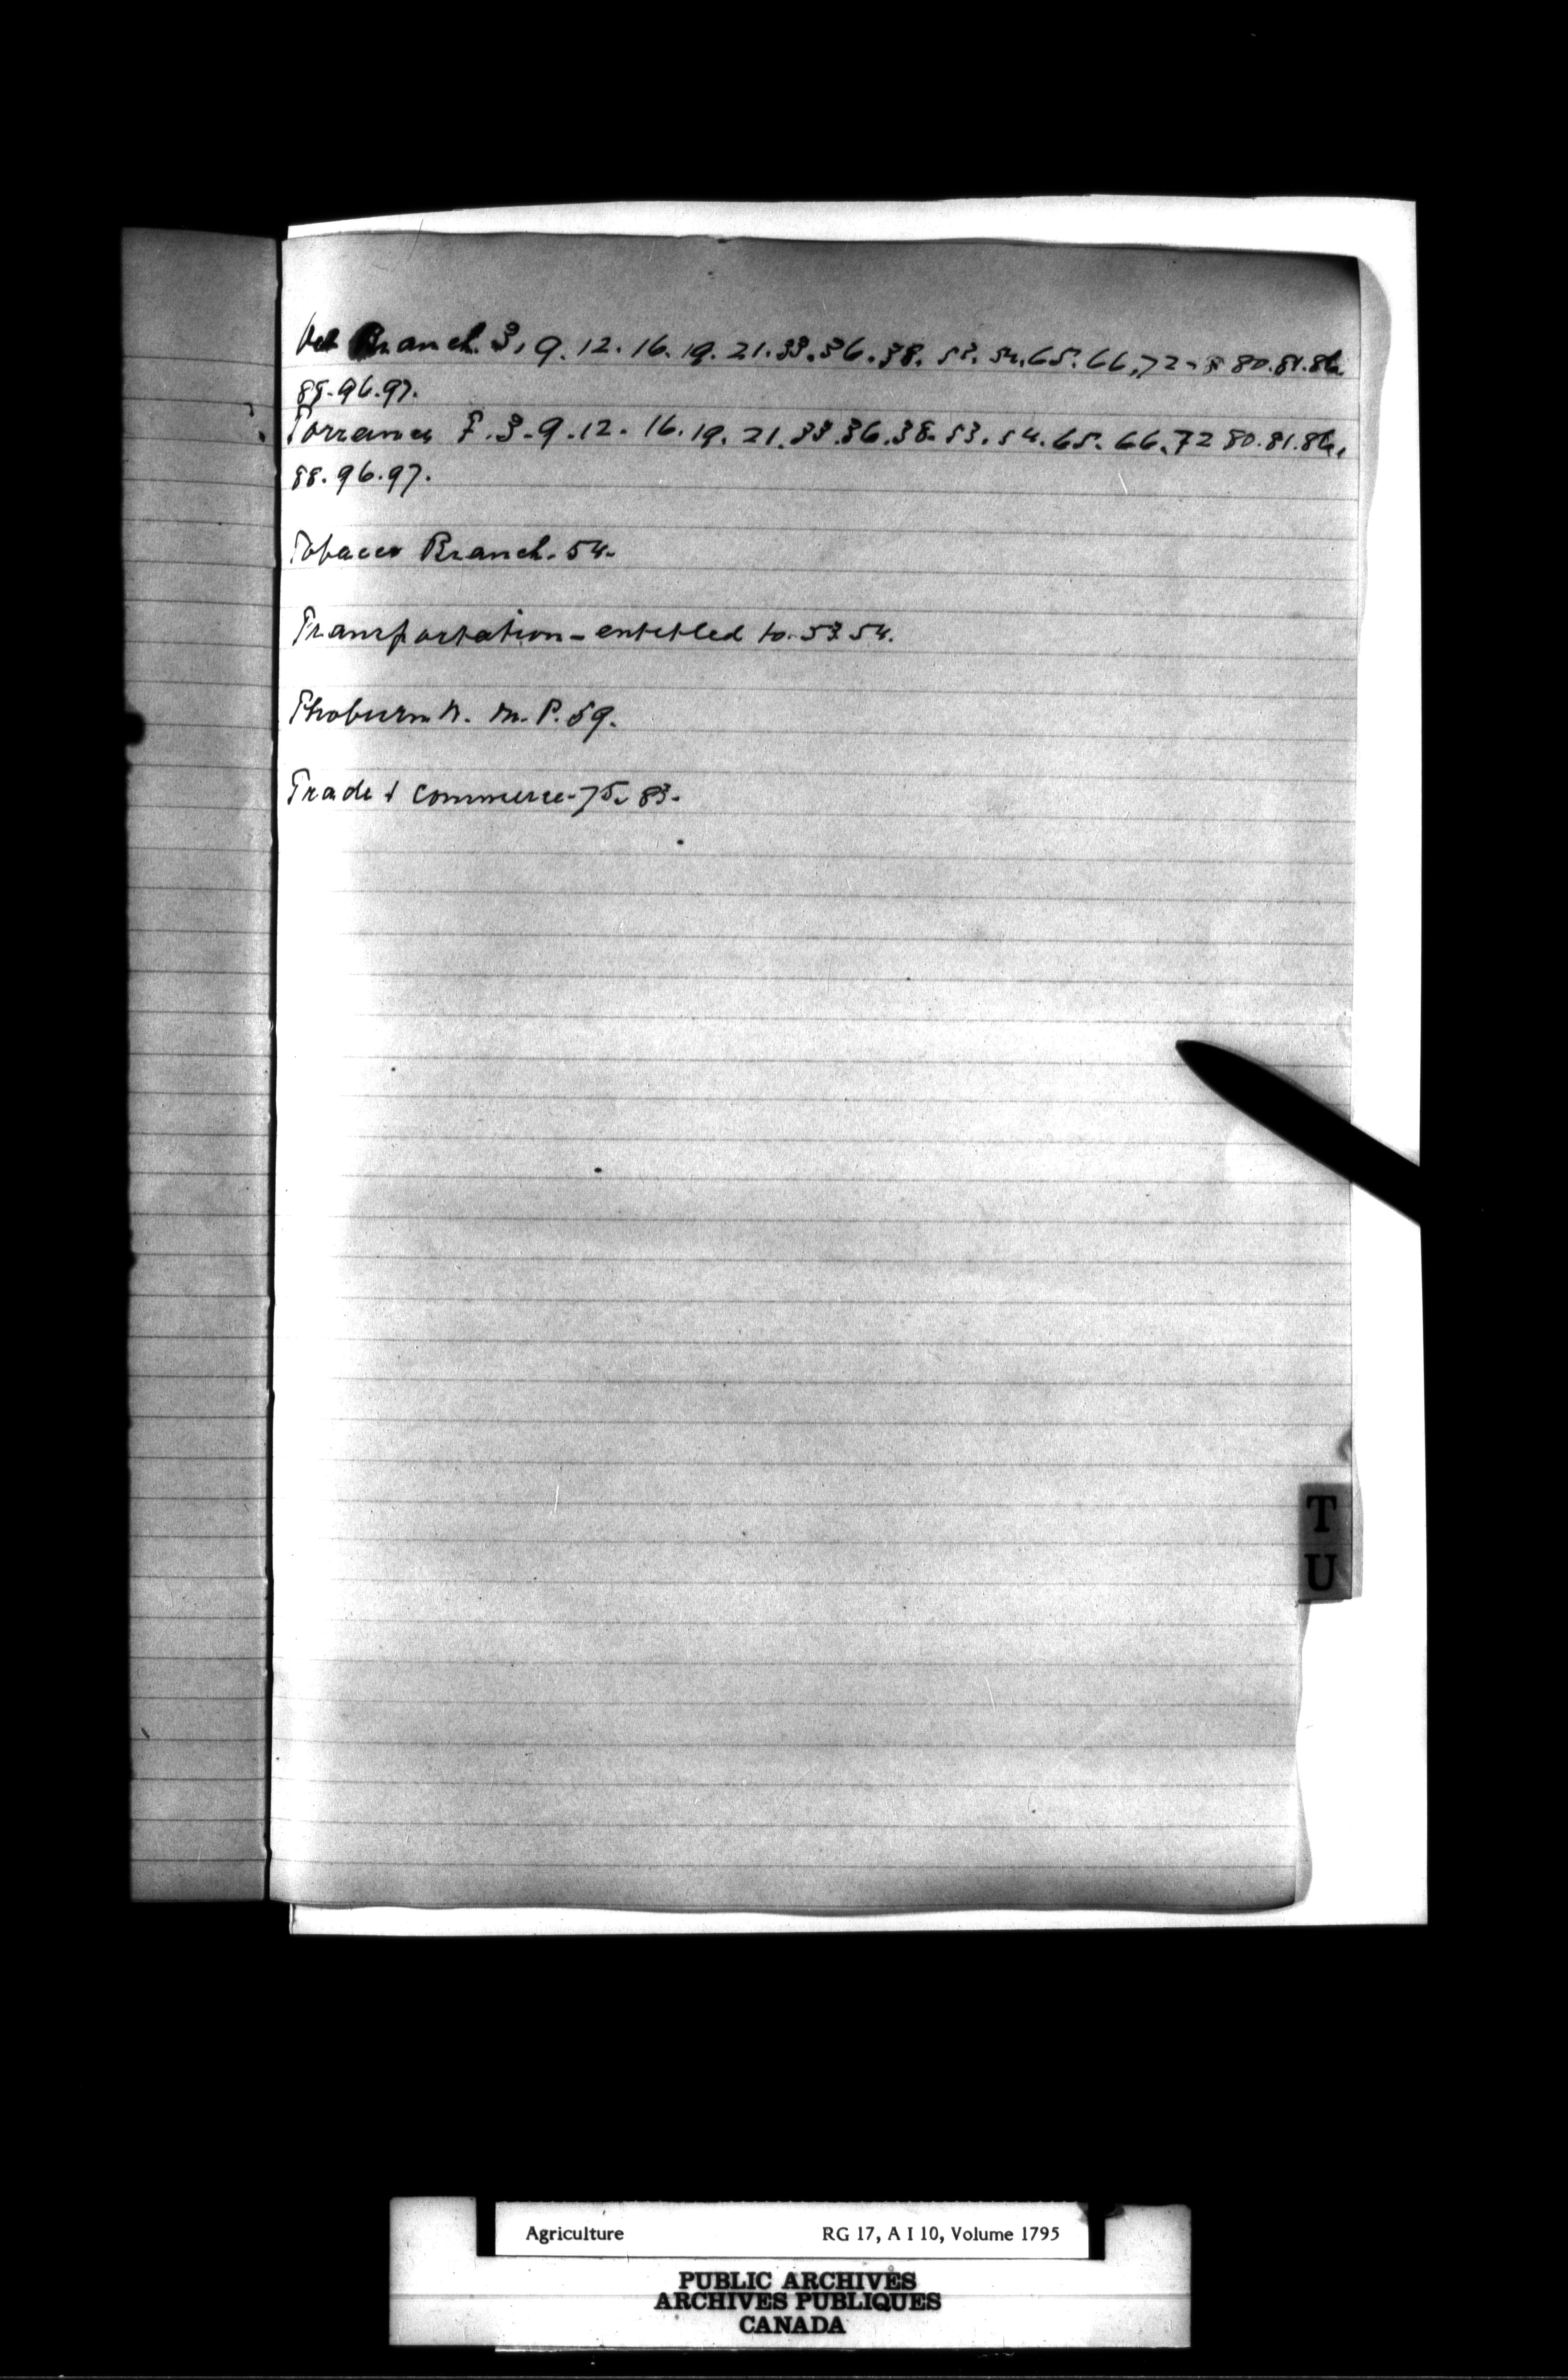 Vet Branch. 3, 9. 12. 16. 19. 21. 33. 36. 38. 53. 54. 65. 66, 72 - 80. 81. 86.
88. 96. 97.
Torrance F. 3 - 9. 12 - 16. 19. 21. 33. 36. 38. 53. 54. 65. 66. 72 80. 81. 86.
88. 96. 97.
Tobacco Branch - 54.
Transportation - entitled to - 53 54.
Thoburn M. P. 59.
Trade & Commerce - 75. 83.
T
U
Agriculture RG 17, A I 10, Volume 1795
PUBLIC ARCHIVES
ARCHIVES PUBLIQUES
CANADA